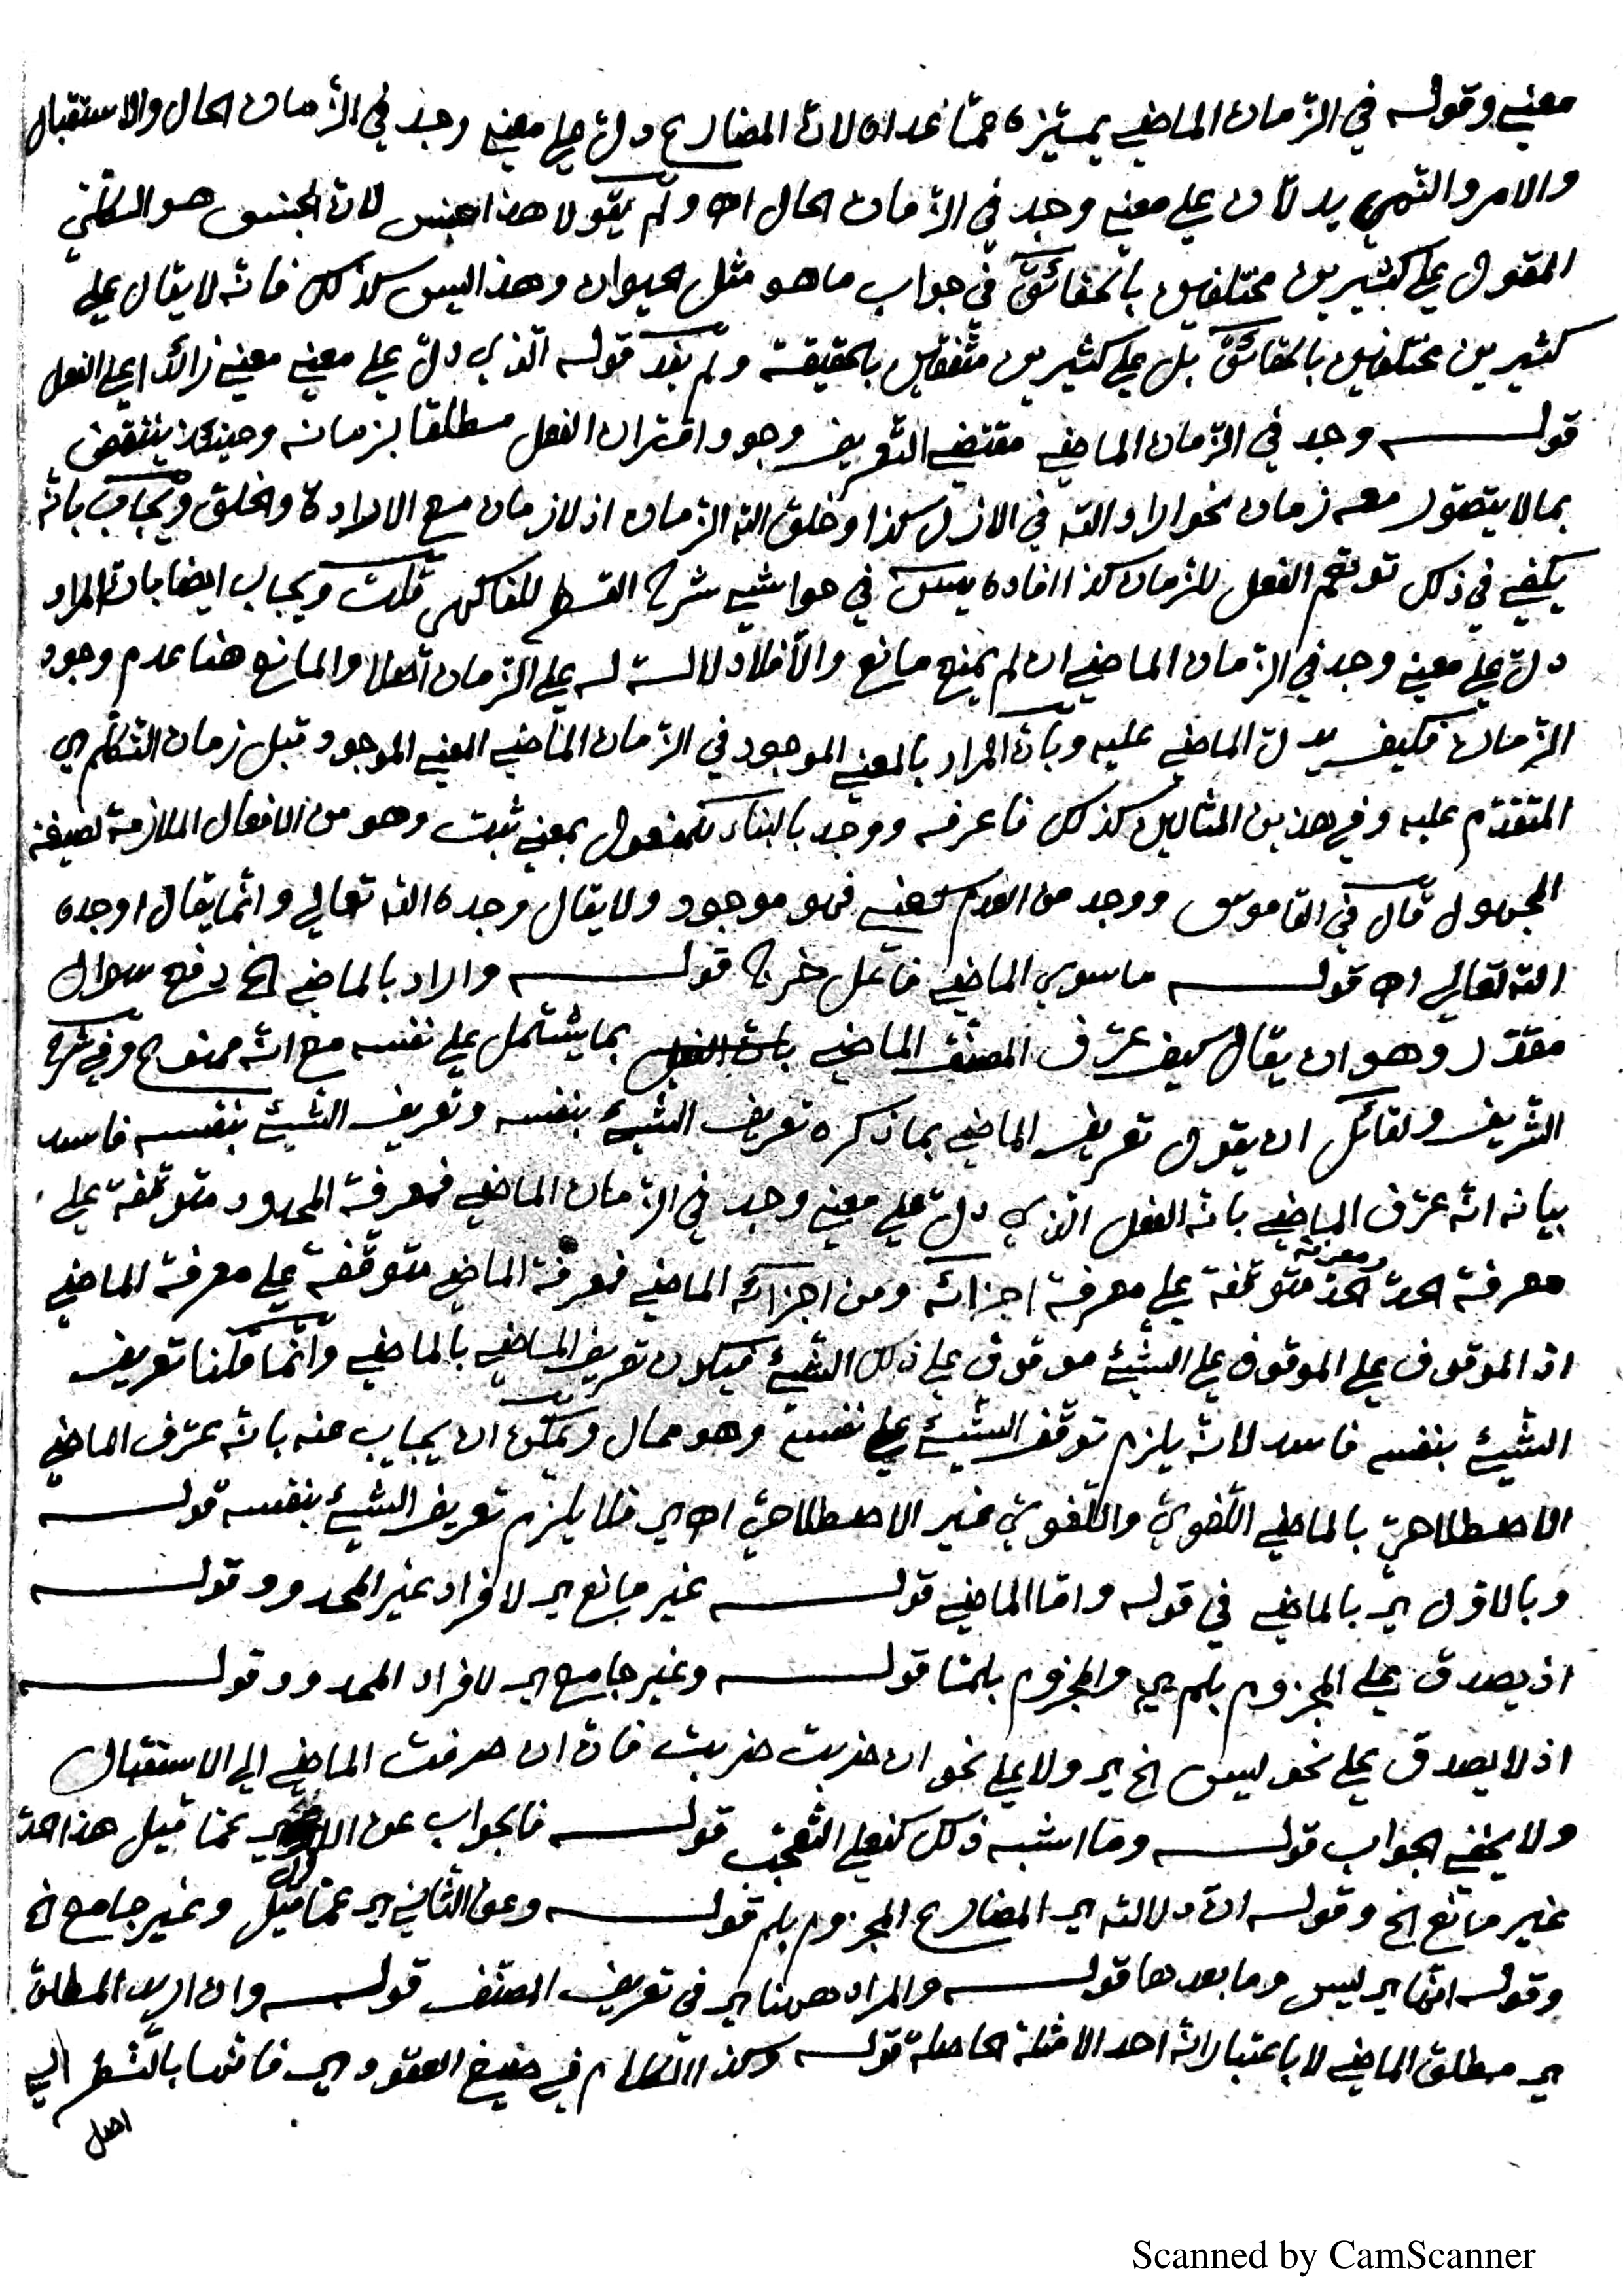 معنى وقوله في الزّمان الماضي يميّزه عمّا عداه لانّ المضارع دلّ على معنى وجد في الزّمان الحال والاستقبال
والامر والنّهي يدلّان على معنى وجد في الزّمان الحال اه ولم يقولا هذا جنس لانّ الجنس هو الكلّيّ
المقول على كثيرين مختلفين بالحقائق في جواب ما هو مثل الحيوان وهذا ليس كذلك فانّه لا يقال على
كثيرين مختلفين بالحقائق بل على كثيرين متّفقين بالحقيقة ولم يفد قوله الّذي دلّ على معنى معنى زائدا على الفعل
قوله وجد في الزّمان الماضي مقتضى التّعريف وجود اقتران الفعل مطلقا بزمانه وحينئذ ينتقض
بما لا يتصوّر معه زمان نحو اراد اللّه في الازل كذا وخلق اللّه الزّمان اذ لا زمان مع الارادة والخلق ويجاب بانّه
يكفي في ذلك توهّم الفعل للزمان كذا افاده يسٓ في حواشي شرح القطر للفاكهي قلت ويجاب ايضا بانّ المراد
دلّ على معنى وجد في الزّمان الماضي ان لم يمنع مانع والّا فلا دلالة له على الزّمان اصلا والمانع هنا عدم وجود
الزّمان فكيف يدلّ الماضي عليه وبانّ المراد بالمعنى الموجود في الزّمان الماضي المعنى الموجود قبل زمان التّكلّم اي
المتقدّم عليه وفي هذين المثالين كذلك فاعرفه ووجد بالبناء للمفعول بمعنى ثبت وهو من الافعال الملازمة لصيغة
المجهول قال في القاموس ووجد من العدم كعني فهو موجود ولا يقال وجده اللّه تعالى وانّما يقال اوجده
اللّه تعالى اه قوله ما سوى الماضي فاعل خرج قوله واراد بالماضي الخ دفع سوال
مقدّر وهو ان يقال كيف عرّف المصنّف الماضي بما يشتمل على نفسه مع انّه ممنوع وفي شرح
الشّريف ولقائل ان يقول تعريف الماضي بما ذكره تعريف الشّيئ بنفسه وتعريف الشّيئ بنفسه فاسد
بيانه انّه عرّف الماضي بانّه الفعل الّذي دلّ على معنى وجد في الزّمان الماضي فمعرفة المحدود متوقّفة على
معرفة الحدّ ومعرفة الحدّ متوقّفة على معرفة اجزائه ومن اجزائه الماضي فمعرفة الماضي متوقّفة على معرفة الماضي
اذ الموقوف على الموقوف على الشّيئ موقوف على ذلك الشّيئ فيكون تعريف الماضي بالماضي وانّما قلنا تعريف
الشّيئ بنفسه فاسد لانّه يلزم توقّف الشّيئ على نفسه وهو محال ويمكن ان يجاب عنه بانّه عرّف الماضي
الاصطلاحيّ بالماضي اللّغويّ واللّغويّ غير الاصطلاحيّ اه اي فلا يلزم تعريف الشّيئ بنفسه قوله
وبالاوّل اي بالماضي في قوله وامّا الماضي قوله غير مانع اي لافراد غير المحدود وقوله
اذ يصدق على المجزوم بلم اي والمجزوم بلمّا قوله وغير جامع اي لافراد المحدود وقوله
اذ لا يصدق على نحو ليس الخ اي ولا على نحو ان ضربت ضربت فانّ ان صرفت الماضي الى الاستقبال
ولا يخفى الجواب قوله وما اشبه ذلك كفعلي التّعجّب قوله فالجواب عن الاوّل اي عمّا قيل هذا الحدّ
غير مانع الخ وقوله انّ دلالته اي المضارع المجزوم بلم قوله وعن الثّاني اي عمّا قيل وغير جامع الخ
وقوله انّها اي ليس وما بعدها قوله والمراد ههنا اي في تعريف المصنّف قوله وان اريد المطلق
اي مطلق الماضي لا باعتبار انّه احد الامثلة الحاصلة قوله وكذا الكلام في صيغ العقود اي فانّها بالنّظر الى
اصل
Scanned by CamScanner